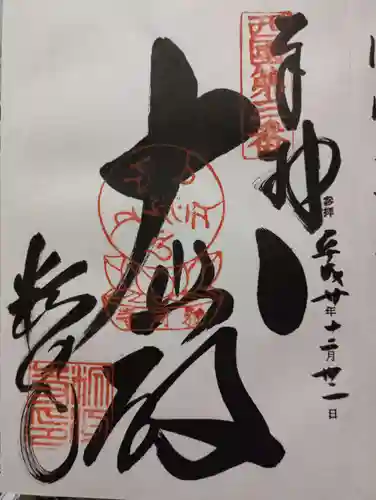 西国第三番
奉拝
参拝
平成廿年十二月廿二日
大悲殿
粉河寺